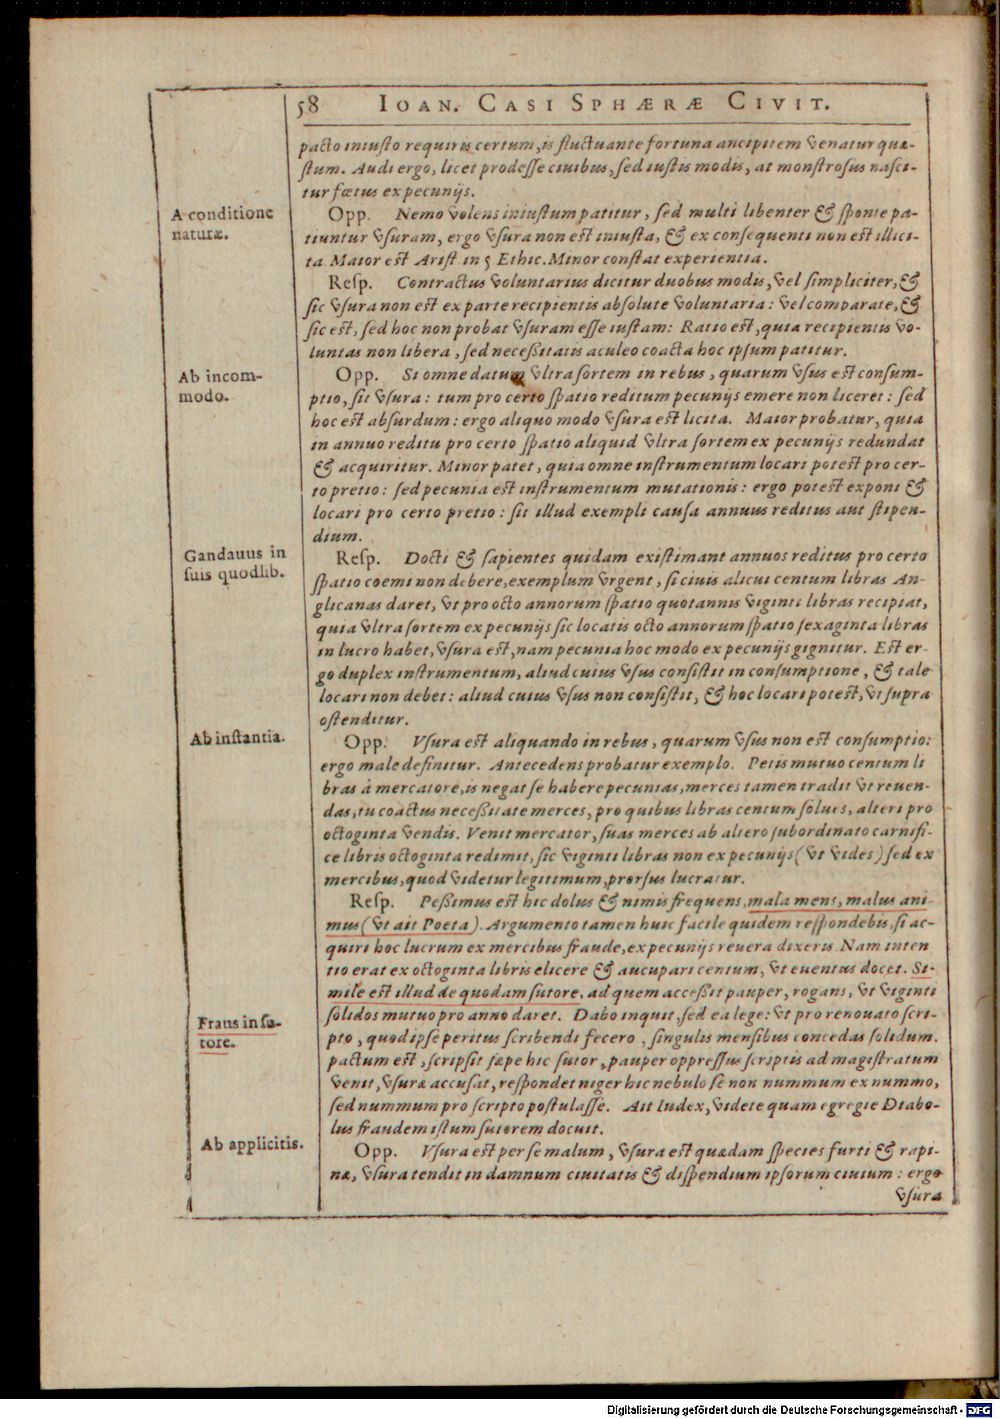 58 IOAN. CASI SPHÆRÆ CIVIT.
pacto iniusto requiris certum, is fluctuante fortuna ancipitem venatur quæ-
stum. Audi ergo, licet prodesse ciuibus, sed iustis modis, at monstrosus nasci-
tur fœtus ex pecunijs.
A conditione
naturæ.
Opp. Nemo volens iniustum patitur, sed multi libenter & sponte pa-
tiuntur vsuram, ergo vsura non est iniusta, & ex consequenti non est illici-
ta. Maior est Arist in 5 Ethic. Minor constat experientia.
Resp. Contractus voluntarius dicitur duobus modis, vel simpliciter, &
sic vsura non est ex parte recipientis absolute voluntaria: vel comparate, &
sic est, sed hoc non probat vsuram esse iustam: Ratio est, quia recipientis vo-
luntas non libera, sed necessitatis aculeo coacta hoc ipsum patitur.
Ab incom-
modo.
Opp. Si omne datum vltra sortem in rebus, quarum vsus est consum-
ptio, sit vsura: tum pro certo spatio reditum pecunijs emere non liceret: sed
hoc est absurdum: ergo aliquo modo vsura est licita. Maior probatur, quia
in annuo reditu pro certo spatio aliquid vltra sortem ex pecunijs redundat
& acquiritur. Minor patet, quia omne instrumentum locari potest pro cer-
to pretio: sed pecunia est instrumentum mutationis: ergo potest exponi &
locari pro certo pretio: sit illud exempli causa annuus reditus aut stipen-
dium.
Gandauus in
suis quodlib.
Resp. Docti & sapientes quidam existimant annuos reditus pro certo
spatio coemi non debere, exemplum vrgent, si ciuis alicui centum libras An-
glicanas daret, vt pro octo annorum spatio quotannis viginti libras recipiat,
quia vltra sortem ex pecunijs sic locatis octo annorum spatio sexaginta libras
in lucro habet, vsura est, nam pecunia hoc modo ex pecunijs gignitur. Est er-
go duplex instrumentum, aliud cuius vsus consistit in consumptione, & tale
locari non debet: aliud cuius vsus non consistit, & hoc locari potest, vt supra
ostenditur.
Ab instantia.
Opp. Vsura est aliquando in rebus, quarum vsus non est consumptio:
ergo male definitur. Antecedens probatur exemplo. Petis mutuo centum li
bras à mercatore, is negat se habere pecunias, merces tamen tradit vt reuen-
das, tu coactus necessitate merces, pro quibus libras centum solues, alteri pro
octoginta vendis. Venit mercator, suas merces ab altero subordinato carnifi-
ce libris octoginta redimit, sic viginti libras non ex pecunijs (vt vides) sed ex
mercibus, quod videtur legitimum, prorsus lucratur.
Resp. Pessimus est hic dolus & nimis frequens, mala mens, malus ani-
mus (vt ait Poeta). Argumento tamen huic facile quidem respondebis, si ac-
quiri hoc lucrum ex mercibus fraude, ex pecunijs reuera dixeris. Nam inten
tio erat ex octoginta libris elicere & aucupari centum, vt euentus docet. Si-
mile est illud de quodam sutore, ad quem accessit pauper, rogans, vt viginti
Fraus in su-
tore.
solidos mutuo pro anno daret. Dabo inquit, sed ea lege: vt pro renouato scri-
pto, quod ipse peritus scribendi fecero, singulis mensibus concedas solidum.
pactum est, scripsit sæpe hic sutor, pauper oppressus scriptis ad magistratum
venit, vsuræ accusat, respondet niger hic nebulo se non nummum ex nummo,
sed nummum pro scripto postulasse. Ait Iudex, videte quam egregie Diabo-
lus fraudem istum sutorem docuit.
Ab applicitis.
Opp. Vsura est per se malum, vsura est quædam species furti & rapi-
næ, vsura tendit in damnum ciuitatis & dispendium ipsorum ciuium: ergo
vsura
Digitalisierung gefördert durch die Deutsche Forschungsgemeinschaft - DFG